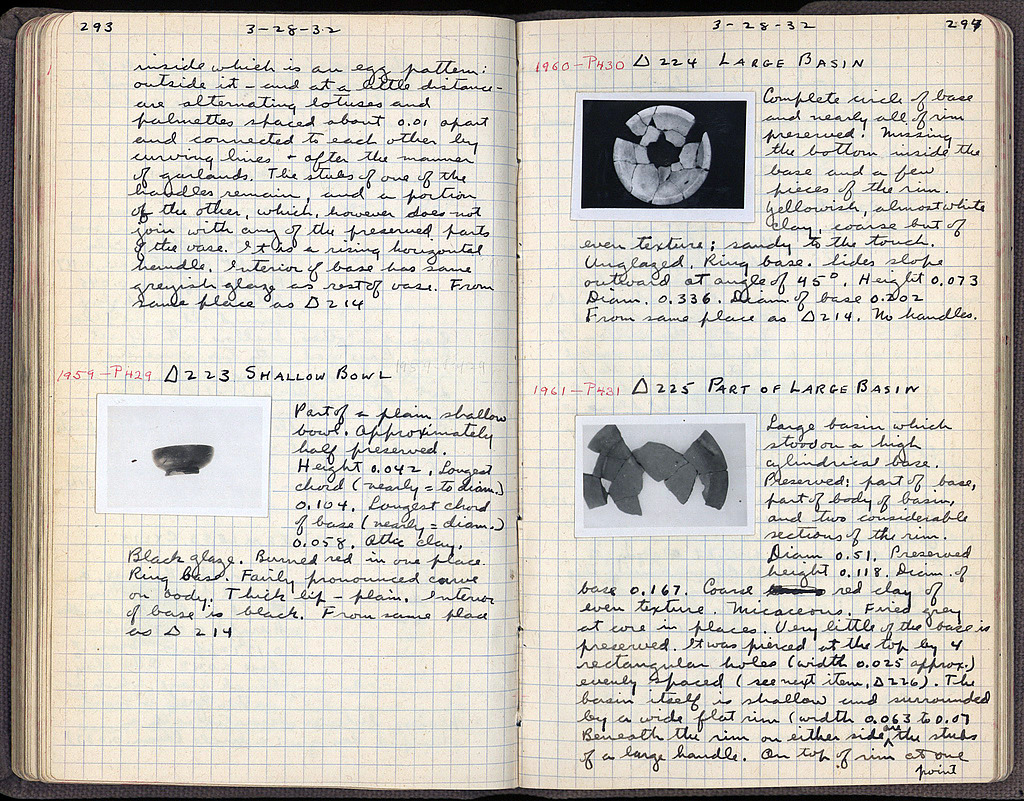 293
3-28-32
inside which is an egg pattern:
outside it - and at a little distance -
are alternating lotuses and
palmettes spaced about 0.01 apart
and connected to each other by
curving lines - after the manner
of garlands. The stubs of one of the
handles remain, and a portion
of the other, which, however does not
join with any of the preserved parts
of the vase. It is a rising horizontal
handle. Interior of base has same
greyish glaze as rest of vase. From
same place as Δ 214
1959-P429 Δ 223 SHALLOW BOWL
Part of a plain shallow
bowl. Approximately
half preserved.
Height 0.042. Longest
chord (nearly = to diam.)
0.104. Longest chord
of base (nearly = diam.)
0.058. Attic clay.
Black glaze. Burned red in one place.
Ring base. Fairly pronounced curve
on body. Thick lip - plain. Interior
of base is black. From same place
as Δ 214
3-28-32
294
1960-P430 Δ 224 LARGE BASIN
Complete circle of base
and nearly all of rim
preserved. Missing
the bottom inside the
base and a few
pieces of the rim.
Yellowish, almost white
clay, coarse but of
even texture; sandy to the touch.
Unglazed. Ring base. Sides slope
outward at angle of 45°. Height 0.073
Diam. 0.336. Diam of base 0.202
From same place as Δ 214. No handles.
1961-P431 Δ 225 PART OF LARGE BASIN
Large basin which
stood on a high
cylindrical base.
Preserved: part of base,
part of body of basin,
and two considerable
sections of the rim.
Diam 0.51. Preserved
height 0.118. Diam. of
base 0.167. Coarse red clay of
even texture. Micaceous. Fired grey
at core in places. Very little of the base is
preserved. It was pierced at the top by 4
rectangular holes (width 0.025 approx.)
evenly spaced (see next item, Δ 226). The
basin itself is shallow and surrounded
by a wide flat rim (width 0.063 to 0.07
Beneath the rim on either side are the stubs
of a large handle. On top of rim at one
point